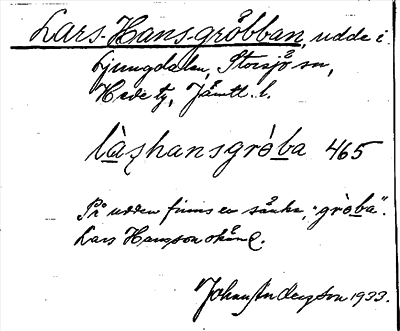 Lars-Hans-gröbban, udde i
Ljungdalen, Storsjö sn,
Hede tg, Jämtl. l.
làs̱hansgrò̱ba 465
På udden finns en sänka, "grò̱ba".
Lars Hansson okänd.
Johan Anderzson 1933.